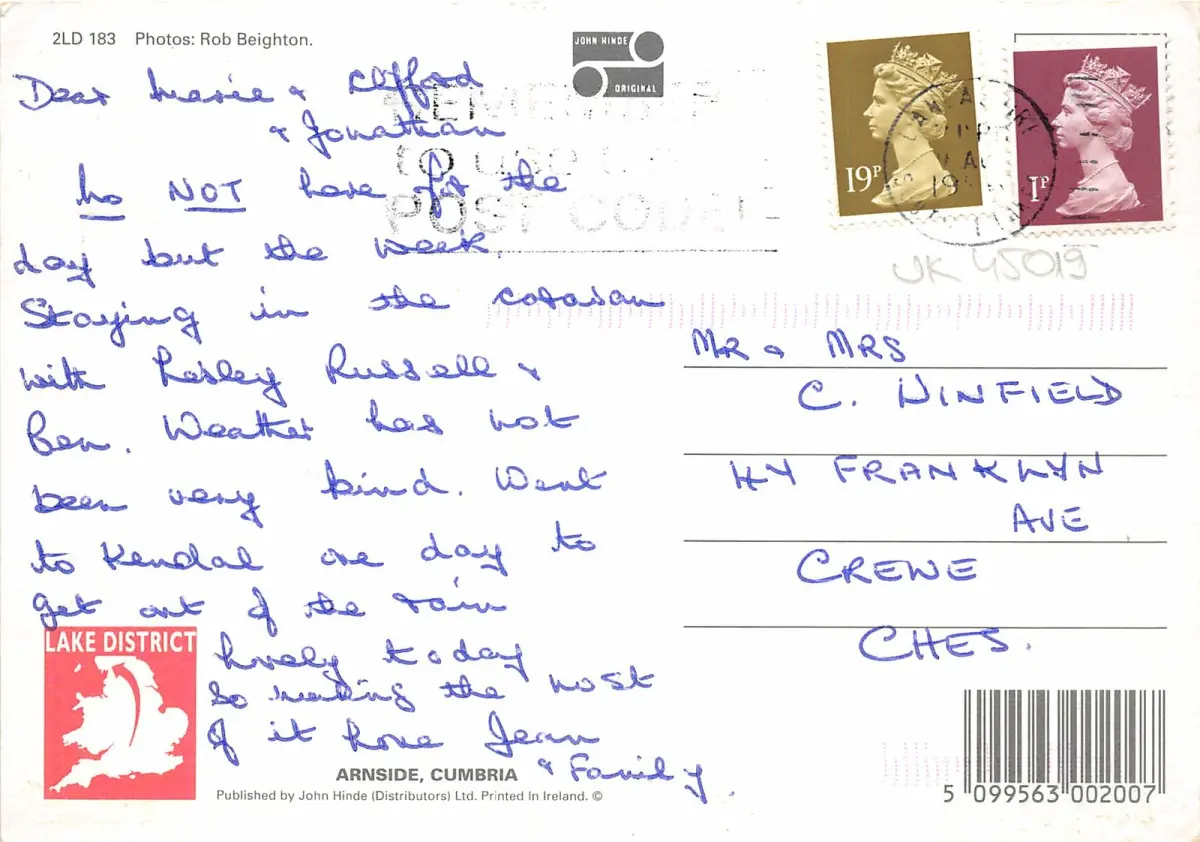 2LD 183 Photos: Rob Beighton.
JOHN HINDE
ORIGINAL
Dear Marie & Clifford
& Jonathan
No NOT here for the
day but the week.
Staying in the caravan
with Lesley Russell &
Ben. Weather has not
been very kind. Went
to Kendal one day to
get out of the rain
lovely today
so making the most
of it Love Jean
& Family.
LAKE DISTRICT
ARNSIDE, CUMBRIA
Published by John Hinde (Distributors) Ltd. Printed In Ireland. ©
REMEMBER
to use the
POST CODE
19P
1P
UK 45019
MR & MRS
C. WINFIELD
44 FRANKLYN
AVE
CREWE
CHES.
5 099563 002007